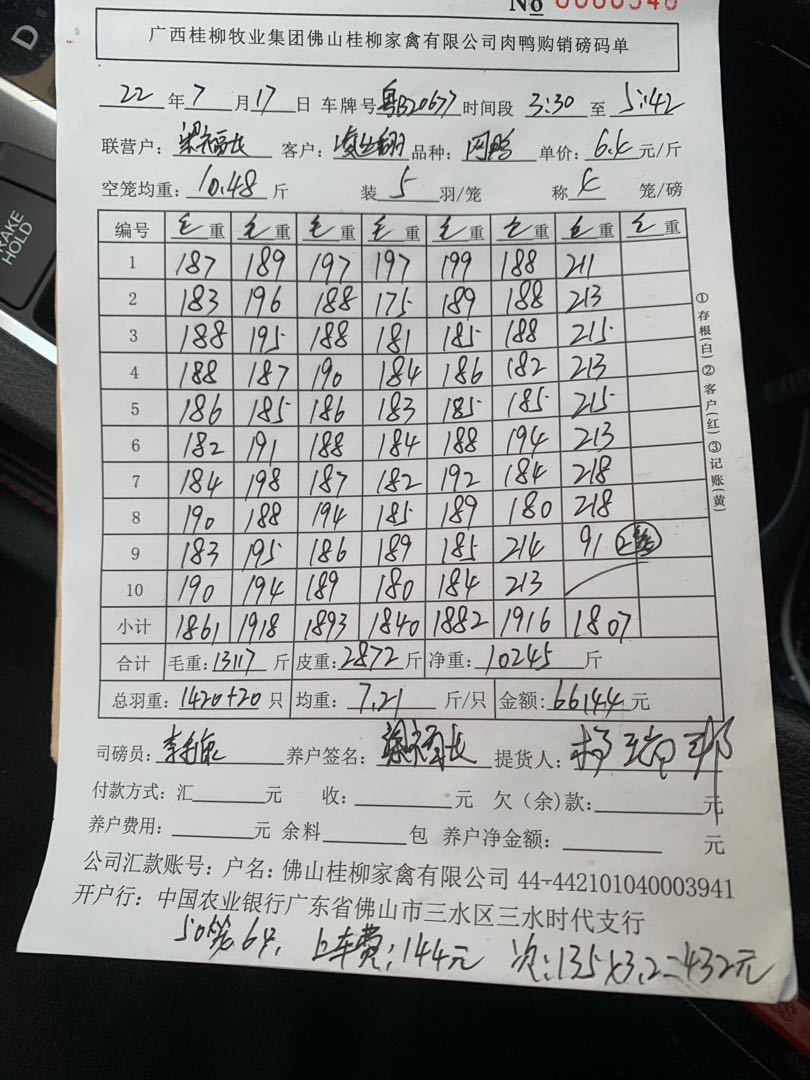 D
BRAKE HOLD
No 0000540
广西桂柳牧业集团佛山桂柳家禽有限公司肉鸭购销磅码单
22 年 7 月 17 日 车牌号 粤B20677 时间段 3:30 至 5:42
联营户: 客户: 品种: 单价: 6.4 元/斤
空笼均重: 10.48 斤 装 5 羽/笼 称 4 笼/磅
编号 毛重 毛重 毛重 毛重 毛重 毛重 毛重 毛重
1 187 189 197 197 199 188 211
2 183 196 188 175 189 188 213
3 188 195 188 181 185 188 215
4 188 187 190 184 186 182 213
5 186 185 186 183 185 185 215
6 182 191 188 184 188 194 213
7 184 198 187 182 192 184 218
8 190 188 194 185 189 180 218
9 183 195 186 189 185 214 91 2笼
10 190 194 189 180 184 213
小计 1861 1918 1893 1840 1882 1916 1807
合计 毛重: 13117 斤 皮重: 2872 斤 净重: 10245 斤
总羽重: 1420+20 只 均重: 7.21 斤/只 金额: 66144 元
①存根(白)②客户(红)③记账(黄)
司磅员: 养户签名: 提货人:
付款方式: 汇 元 收: 元 欠(余)款: 元
养户费用: 元 余料 包 养户净金额: 元
公司汇款账号: 户名: 佛山桂柳家禽有限公司 44-442101040003941
开户行: 中国农业银行广东省佛山市三水区三水时代支行
50笼6只, 上车费: 144元 次: 135×3.2=432元